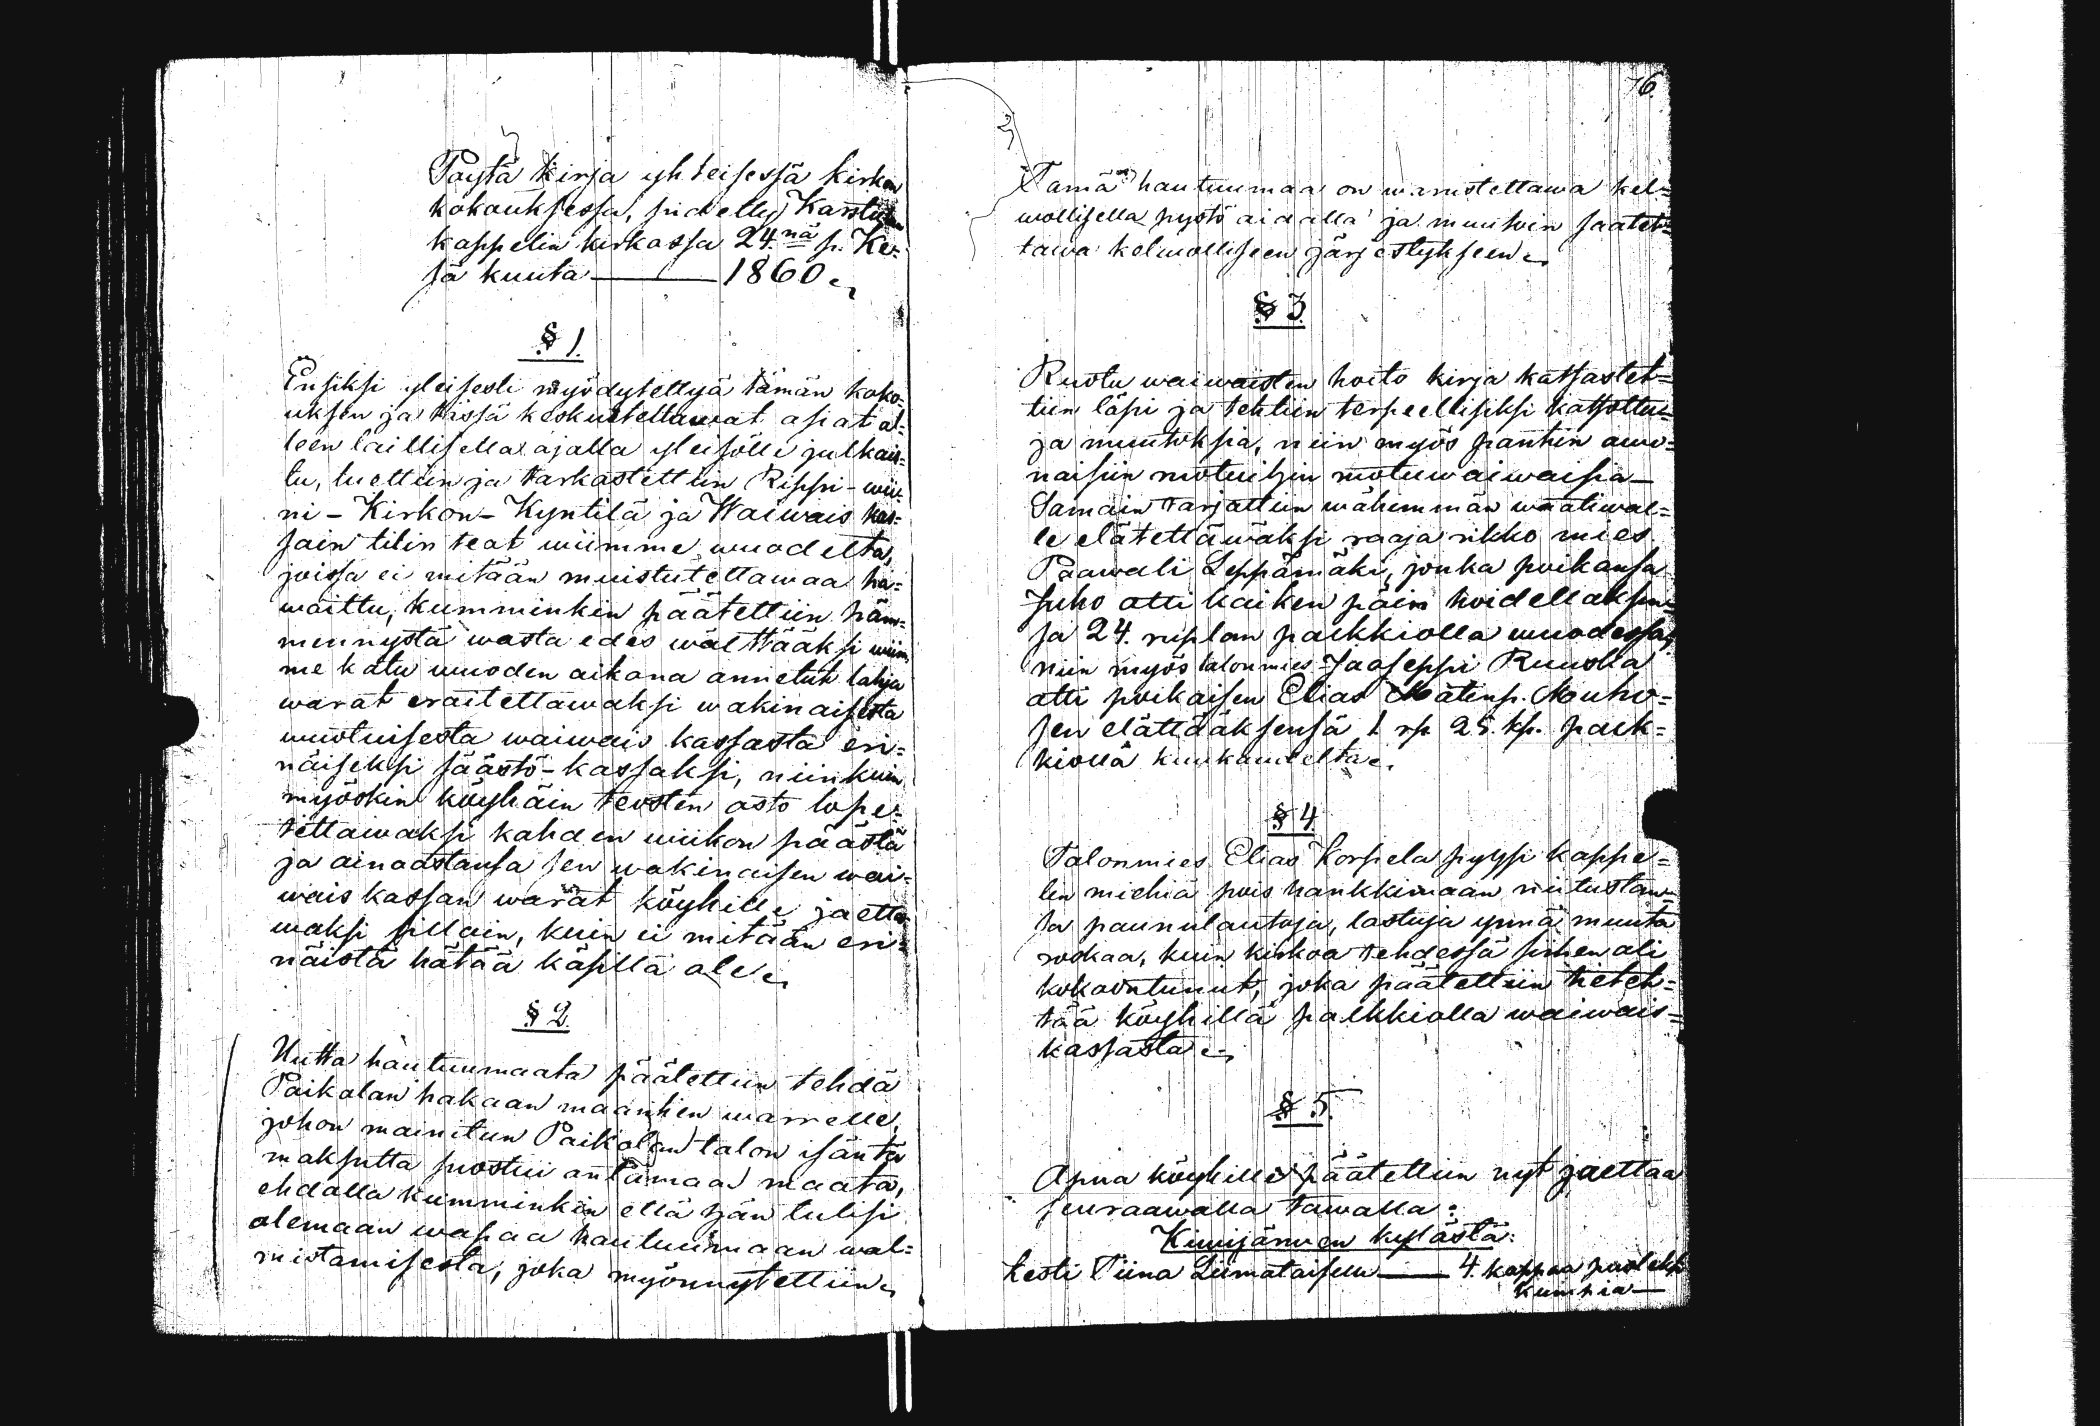 Pöytä kirja yhteisessä kirkon
kokouksessa, pidetty Karstulan
kappelin kirkossa 24.nä p. Ke=
sä kuuta — 1860.
§ 1.
Ensiksi yleisesti myödytettyä tämän koko=
uksen ja tässä keskusteltawat asiat ol=
leen laillisella ajalla yleisölle julkais=
tu, luettiin ja tarkastettiin Rippi-wii=
ni - Kirkon - Kyntilä ja Waiwais kas=
sain tilin teot wiimme wuodelta,
joissa ei mitään muistutettawaa ha=
waittu, kumminkin päätettiin häm=
mennystä wasta edes wälttääksi wiim
me katu wuoden aikana annetut lahja
warat eraitettawaksi wakinaisesta
wuotuisesta waiwais kassasta eri=
näiseksi säästö-kassaksi, niinkuin
myöskin köyhäin teosten osto lope=
tettawaksi kahden wiikon päästä
ja ainoastansa sen wakinaisen wai=
wais kassan warat köyhille jaetta=
waksi silloin, kuin ei mitään eri=
näistä hätää käsillä ole.
§ 2.
Uutta hautuumaata päätettiin tehdä
Paikalan hakaan maantien warrelle,
johon mainitun Paikalan talon isäntä
maksutta suostui antamaan maata,
ehdolla kumminkin että hän tulisi
olemaan wapaa hautuumaan wal=
mistamisesta, joka myönnytettiin.
76.
Tämä hautuumaa on warustettawa kel=
wollisella pystö aidalla ja muutoin saatet=
tawa kelwolliseen järjestykseen.
§ 3.
Ruotu waiwaisten hoito kirja katsastet=
tiin läpi ja tehtiin terpeellisiksi katsottu=
ja muutoksia, niin myös pantiin awo=
naisiin ruotuihin ruotuwaiwaisia —
Samoin tarjottiin wähemmän waatiwal=
le elätettäwäksi raaja rikko mies
Paawali Leppämäki, jonka poikansa
Juho otti kaiken päin hoidellaksen=
sa 24. ruplan palkkiolla wuodessa,
niin myös talonmies Jooseppi Ruuska
otti poikaisen Elias Matinp. Muho=
sen elättääksensä 1 rp 25. kp. palk=
kiolla kuukaudelta.
§ 4.
Talonmies Elias Korpela pyysi kappe=
lin miehiä pois hankkimaan niitustan=
sa paanulautoja, lastuja ynnä muuta
rookaa, kuin kirkoa tehdessä siihen oli
kokoontunut, joka päätettiin teteh=
tää köyhillä palkkiolla waiwais=
kassasta.
§ 5.
Apua köyhille päätettiin nyt jaettaa
seuraawalla tawalla:
Kiwijärwen kylästä:
Leski Tiina Liimataisen — 4. kappaa puoleksi
kumpia —